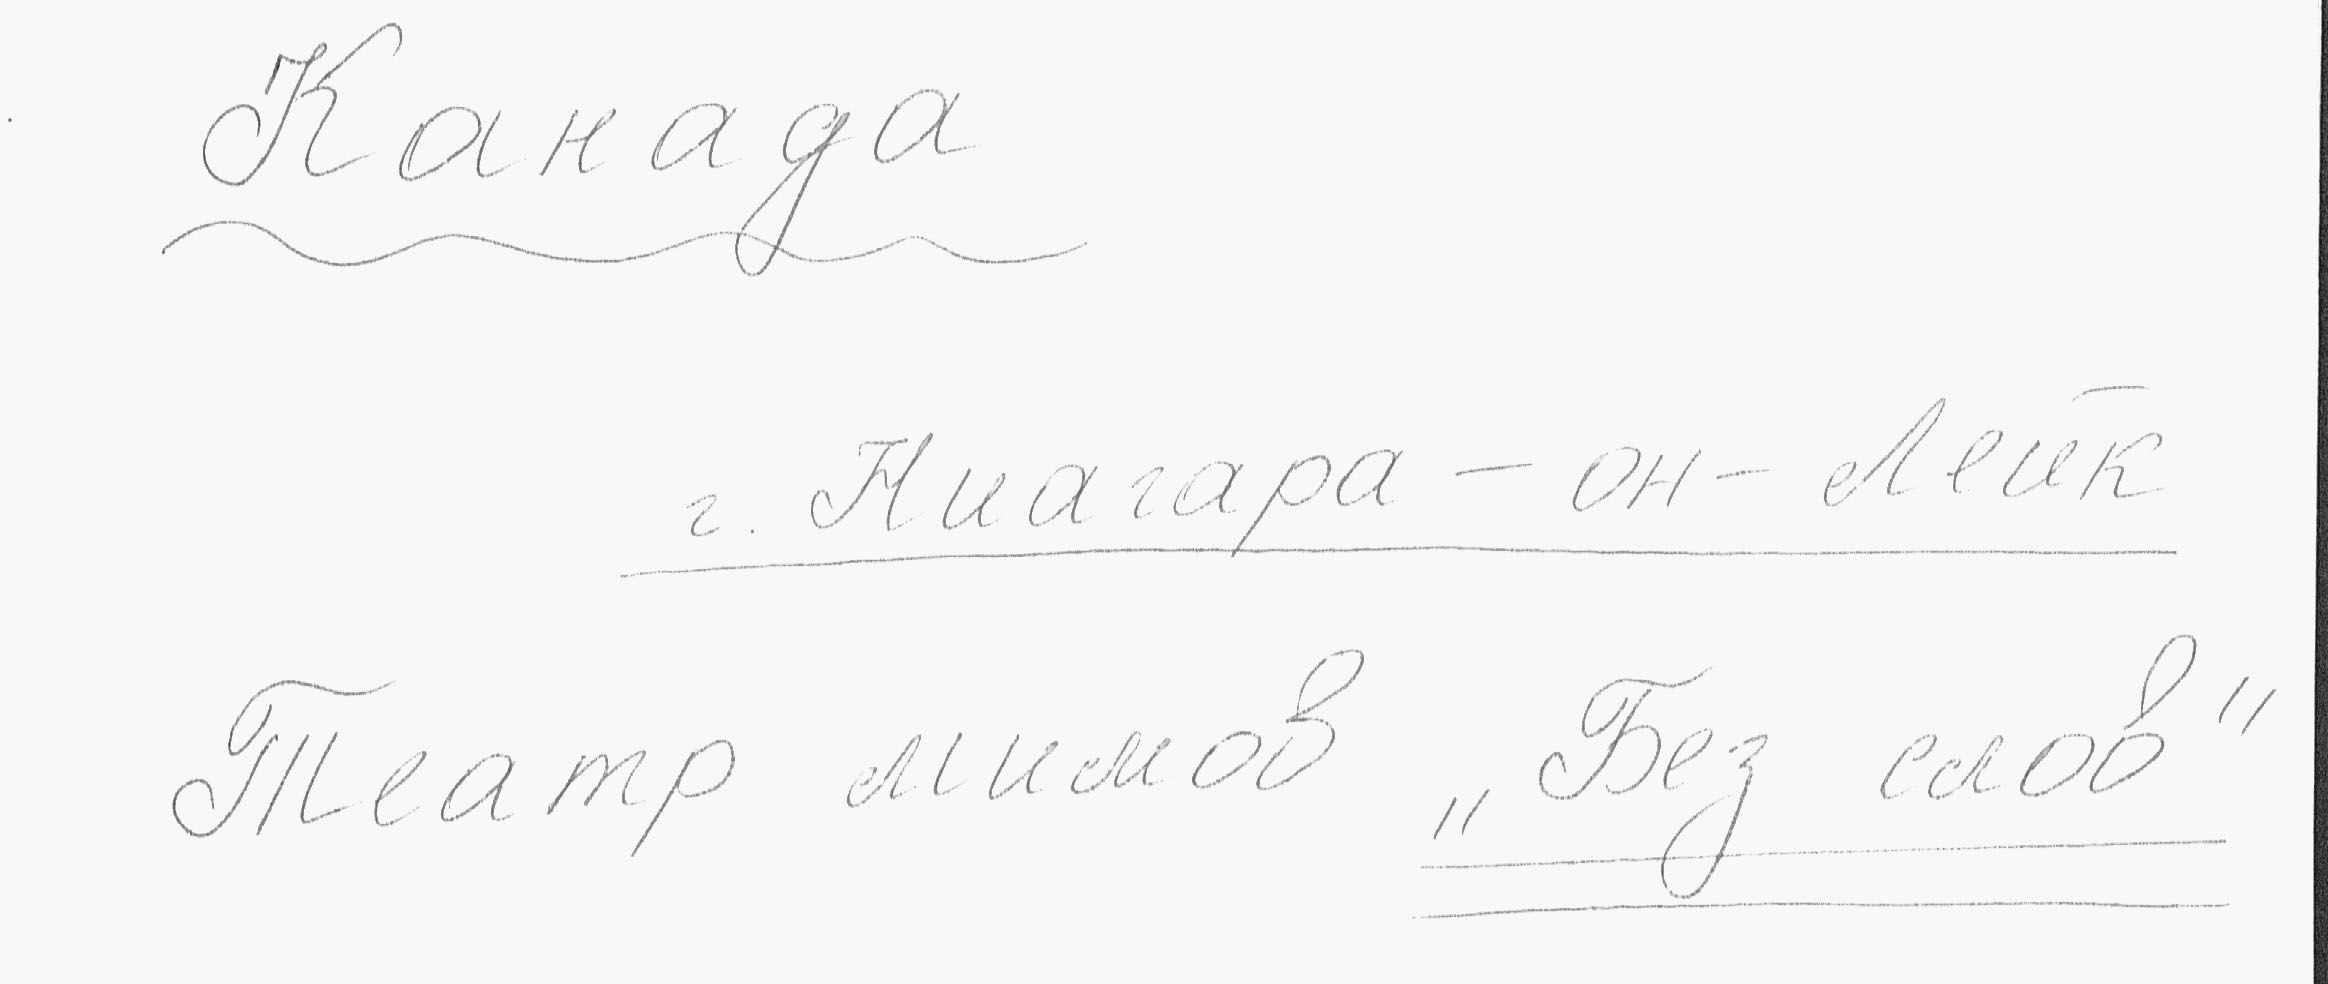 Канада
г. Ниагара - он - Лейк
Театр мимов „Без слов"